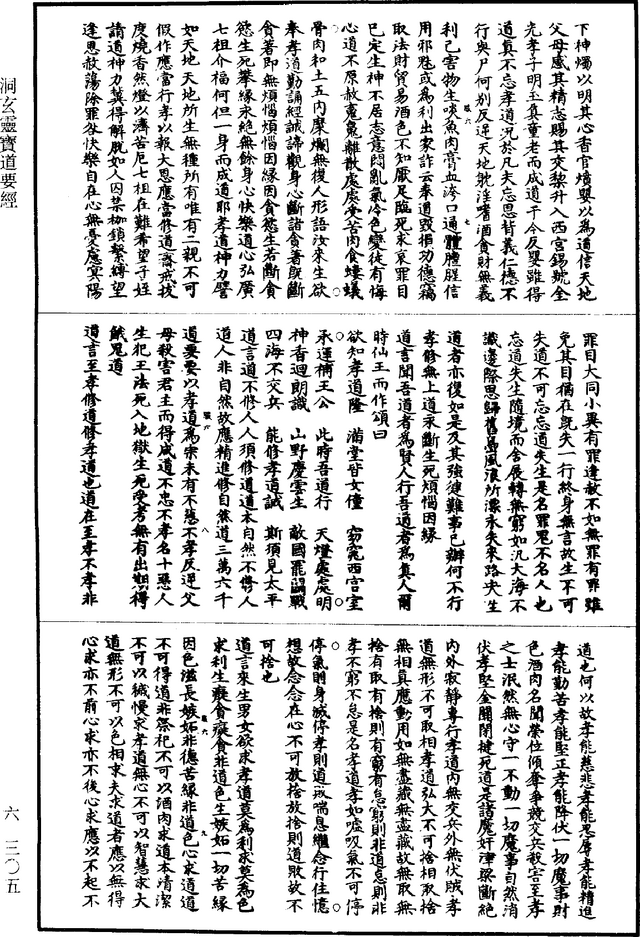 下神燭以明其心香官墳嬰以為道信天地
父母感其精志賜其交梨升入西宮錫號全
光孝子明玉真童老而成道于今反嬰雖得
道真不忘孝道況於凡夫忘恩背義仁德不
行與尸何別反逆天地躭淫嗜酒貪財無義
利己害物生啖魚肉膏血洿口通體腥信
用邪魅或為利出家詐云奉道毀損功德竊
取法財貿易酒色不知厭足臨死求哀罪目
已定生神不居志意悶亂氣冷色變徒有悔
心道不原赦魂離散處處受苦肉食螻蟻
骨肉和土五內糜爛無復人形語汝來生欲
奉孝道勤誦經誡諦觀身心斷諸貪著既斷
貪著即無煩惱煩惱因緣因貪慾生若斷貪
慾生死攀緣永絕無餘身心快樂道心弘廣
七祖介福何但一身而成道耶孝道神力譬
如天地天地所生無種所有唯有二親不可
假作應當行孝以報大恩應當修道齋戒技
度燒香然燈以濟苦厄七祖在難希望子姪
請道神力冀得解脫如人囚禁枷鎖繫縛望
逢恩赦蕩除罪咎快樂自在心無憂慮冥陽
洞玄靈寶道要經
罪目大同小異有罪逢赦不如無罪有罪雖
免其目猶在既失一行終身無言故生不可
失道不可忘忘道失生是名罪鬼不名人也
忘道失生隨境而舍展轉無窮如汎大海不
識邊際思歸舊島風浪所漂永失來路失生
道者亦復如是及其強健難事已辦何不行
孝修無上道永斷生死煩惱因緣
道言聞吾道者為賢人行吾道者為真人爾
時仙王而作頌曰
欲知孝道隆 滿堂皆女僮 窈窕西宮室
承運補王公 此時吾道行 天燈處處明
神香迴朗識 山野慶雲生 敵國罷鬪戰
四海不交兵 能修孝道誠 斯須見太平
道言道不修人人須修道道本自然不儔人
道人非自然故應精進修自然道三萬六千
道要要以孝道為宗未有不慈不孝反逆父
母殺害君主而得成道不忠不孝名十惡人
生犯王法死入地獄生死受考無有出期得
餓鬼道
道言至孝修道修孝道也道在至孝不孝非
道也何以故孝能慈悲孝能忍辱孝能精進
孝能勤苦孝能堅正孝能降伏一切魔事財
色酒肉名聞榮位傾奪爭競交兵殺害至孝
之士泯然無心守一不動一切魔事自然消
伏孝堅金關閉揵死道是諸魔奸津梁斷絕
內外寂靜專行孝道內無交兵外無伏賊孝
道無形不可取相孝道弘大不可捨相取捨
無相真應動用如無盡藏無盡藏故無取無
捨有取有捨則有窮有怠窮則非道怠則非
孝不窮不怠是名孝道道孝如噓吸氣不可停
停氣則身滅停孝則道萎喘息繼念行住憶
想故念念在心不可放捨放捨則道敗故不
可捨也
道言來生男女欲求孝道莫為利求莫為色
求利生癡貪癡貪非道色生嫉妬一切苦緣
因色滋長嫉妬非德苦緣非道色心求道道
不可得道非祭祀不可以酒肉求道本清潔
不可以穢慢求孝道無心不可以智慧求大
道無形不可以色相求夫求道者應以無得
心求亦不前心求亦不後心求應以不起不
六 三〇五